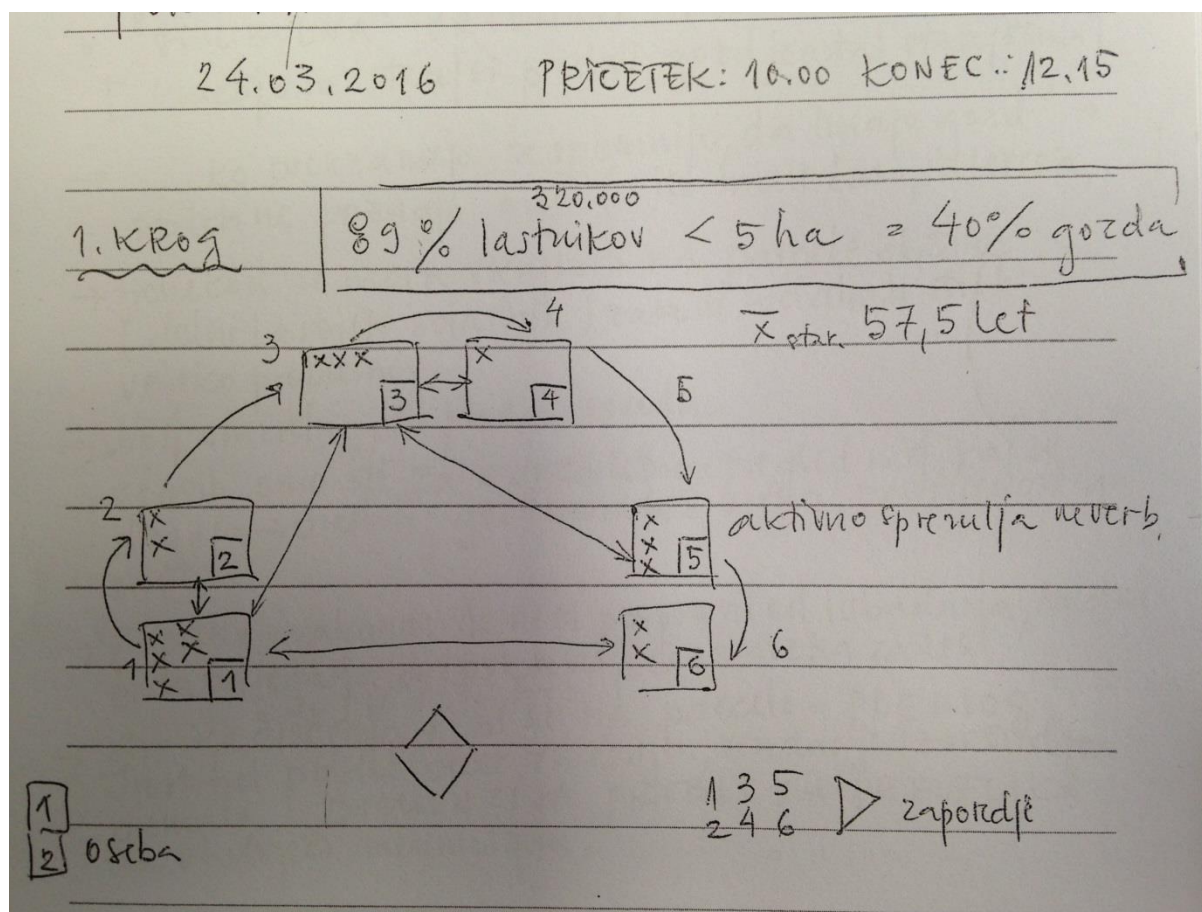 24.03.2016 PRIČETEK: 10.00 KONEC: 12.15
320.000
1. KROG 89% lastnikov < 5 ha = 40% gozda
x star. 57,5 let
3 4
xxx x
3 4
5
2
x x
x 2 x
x 5
aktivno spremlja neverb.
x x
x x
x
x
1 1
x
x 6
6
1
2 oseba
1 3 5
2 4 6 zaporedje